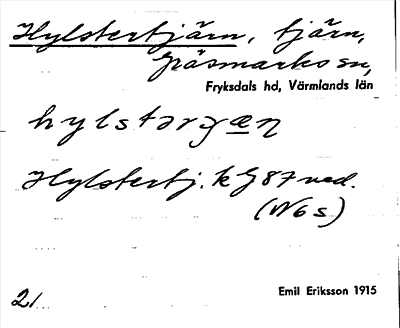 Hylstertjärn, tjärn,
Gräsmarks sn,
Fryksdals hd, Värmlands län
hylstərɟæn
Hylstertj. k G 87 ved.
(N 6 s)
21
Emil Eriksson 1915